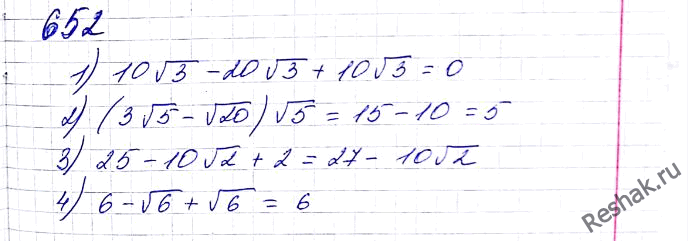 652
1) 10√3 - 20√3 + 10√3 = 0
2) (3√5 - √20)√5 = 15 - 10 = 5
3) 25 - 10√2 + 2 = 27 - 10√2
4) 6 - √6 + √6 = 6
Reshak.ru